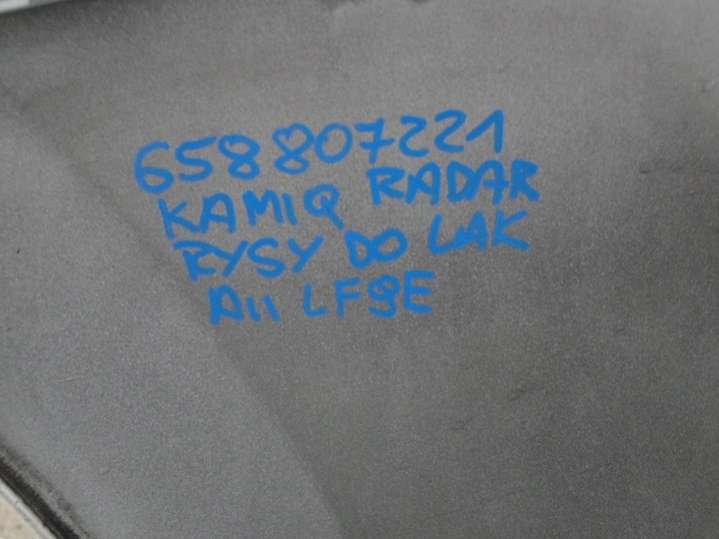 658807221
KAMIQ RADAR
RYSY DO LAK
A11 LF9E